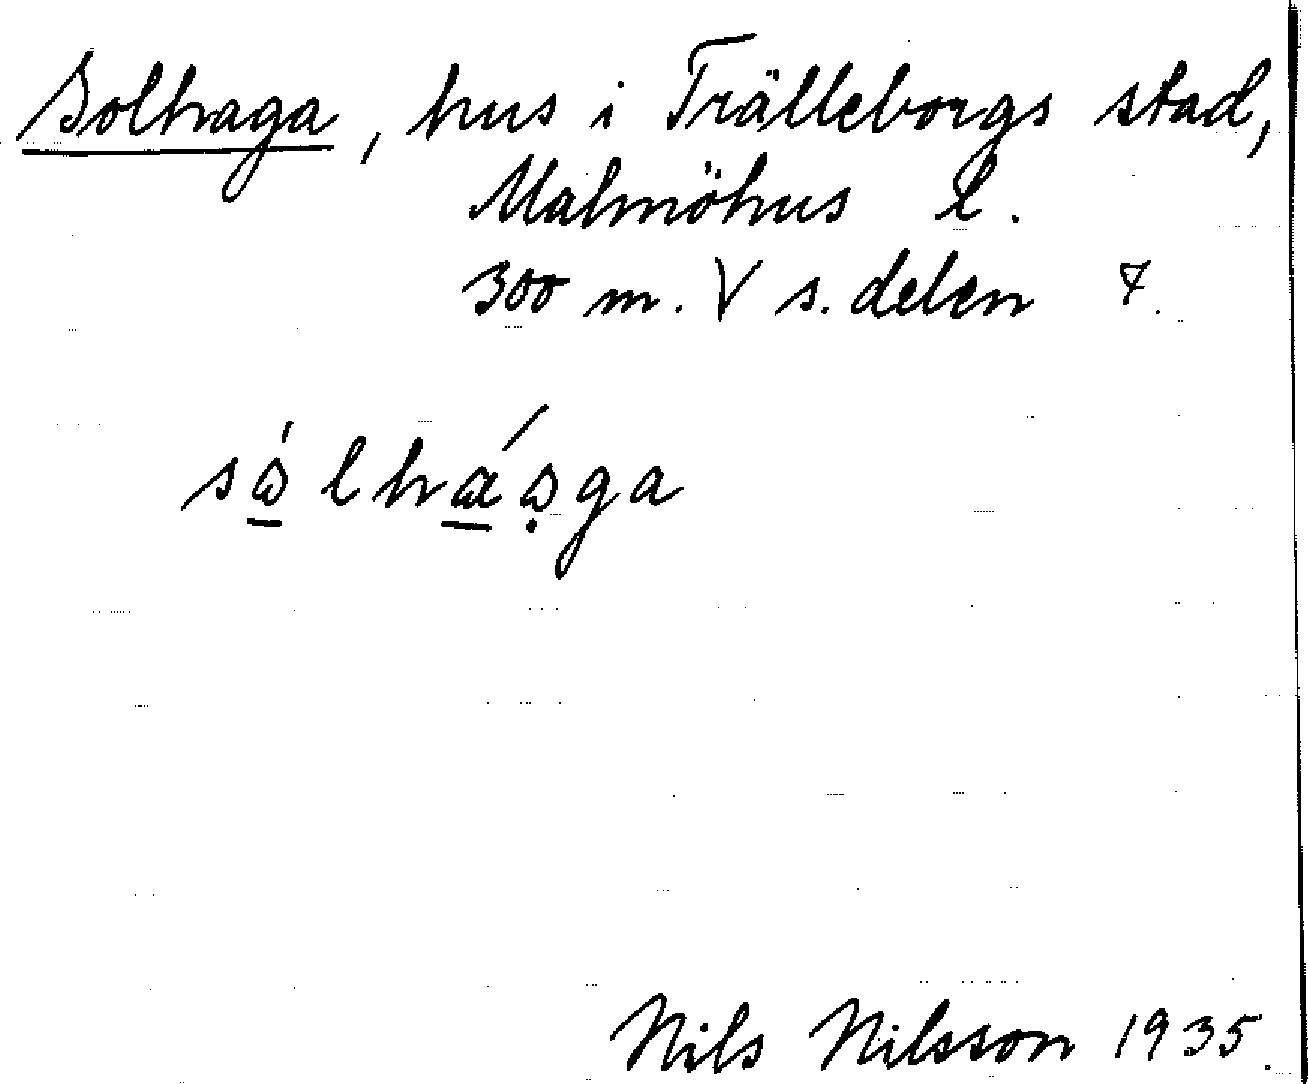 Solhaga, hus i Trälleborgs stad,
Malmöhus l.
300 m. V s. delen 7.
Nils Nilsson 1935.